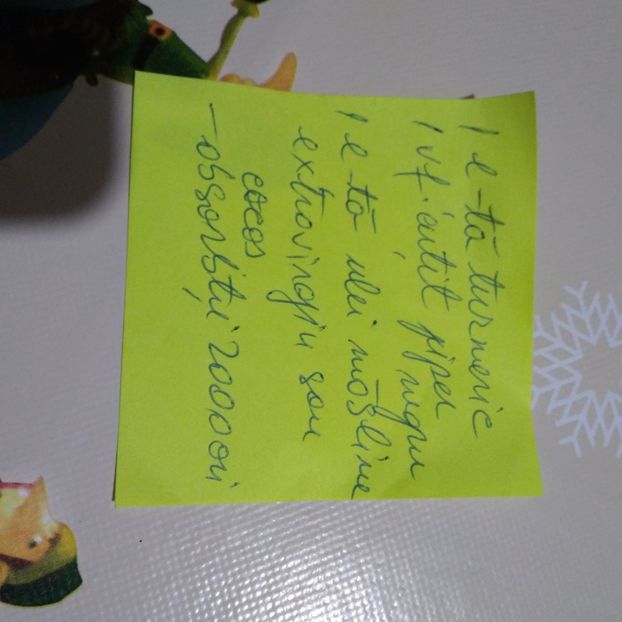 1 l-tă turmeric
1 vf. cuțit piper
negru
1 l-tă ulei măsline
extravirgin sau
cocos
- absorbției 2000 ori